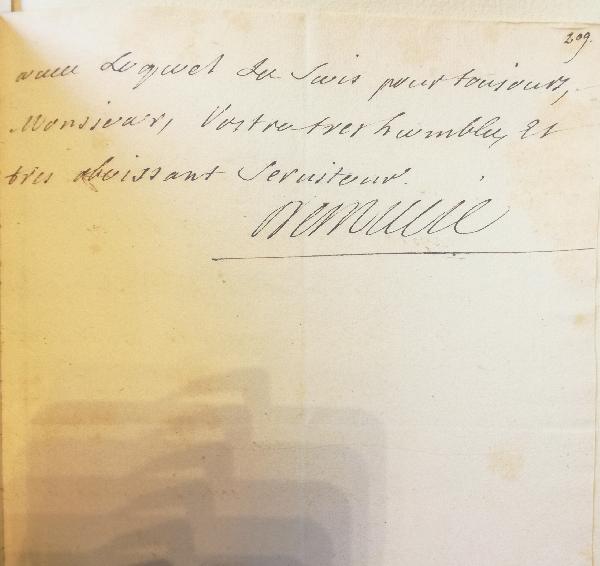 209.
avec Lequel Je Suis pour toujours,
Monsieur, Vostre tres humble, Et
tres obeissant Seruiteur.